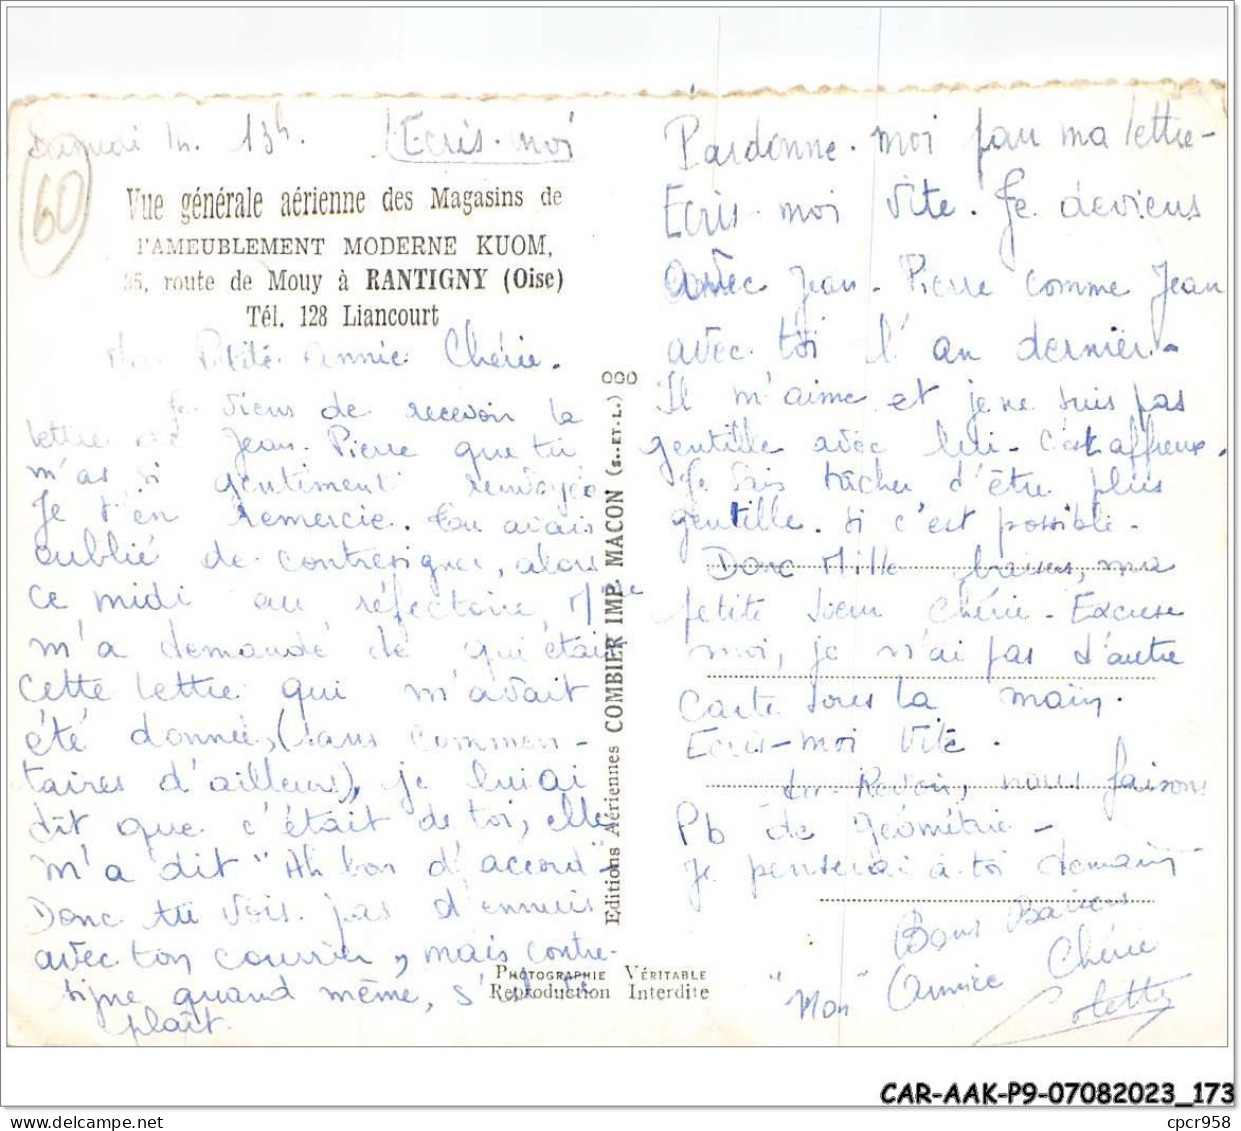 Samedi 13h. Ecris-moi
60
Vue générale aérienne des Magasins de
l'AMEUBLEMENT MODERNE KUOM,
35, route de Mouy à RANTIGNY (Oise)
Tél. 128 Liancourt
Ma Petite Annie Chérie.
Je viens de recevoir la
lettre de Jean-Pierre que tu
m'as si gentiment renvoyée
Je t'en remercie. Tu avais
oublié de contresigner, alors
ce midi au réfectoire, Mlle
m'a demandé de qui était
cette lettre qui m'avait
été donnée, (sans commen-
taires d'ailleurs), je lui ai
dit que c'était de toi, elle
m'a dit "Ah bon d'accord"-
Donc tu vois pas d'ennuis
avec ton courrier, mais contre-
signe quand même, s'il te
plaît.
000
Editions Aériennes COMBIER IMP. MACON (S.-ET-L.)
PHOTOGRAPHIE VÉRITABLE
Reproduction Interdite
Pardonne-moi pour ma lettre-
Ecris-moi vite. Je deviens
avec Jean-Pierre comme Jean
avec toi l'an dernier-
Il m'aime et je ne suis pas
gentille avec lui- c'est affreux.
Je vais tâcher d'être plus
gentille. si c'est possible-
Donc Mille baisers, ma
petite soeur Chérie- Excuse
moi, je n'ai pas d'autre
carte sous la main.
Ecris-moi Vite.
Au-Revoir, nous faisons
Pb de géométrie-
Je penserai à toi demain
Bons Baisers
"Mon" Annie Chérie
Colette
CAR-AAK-P9-07082023_173
cpcr958